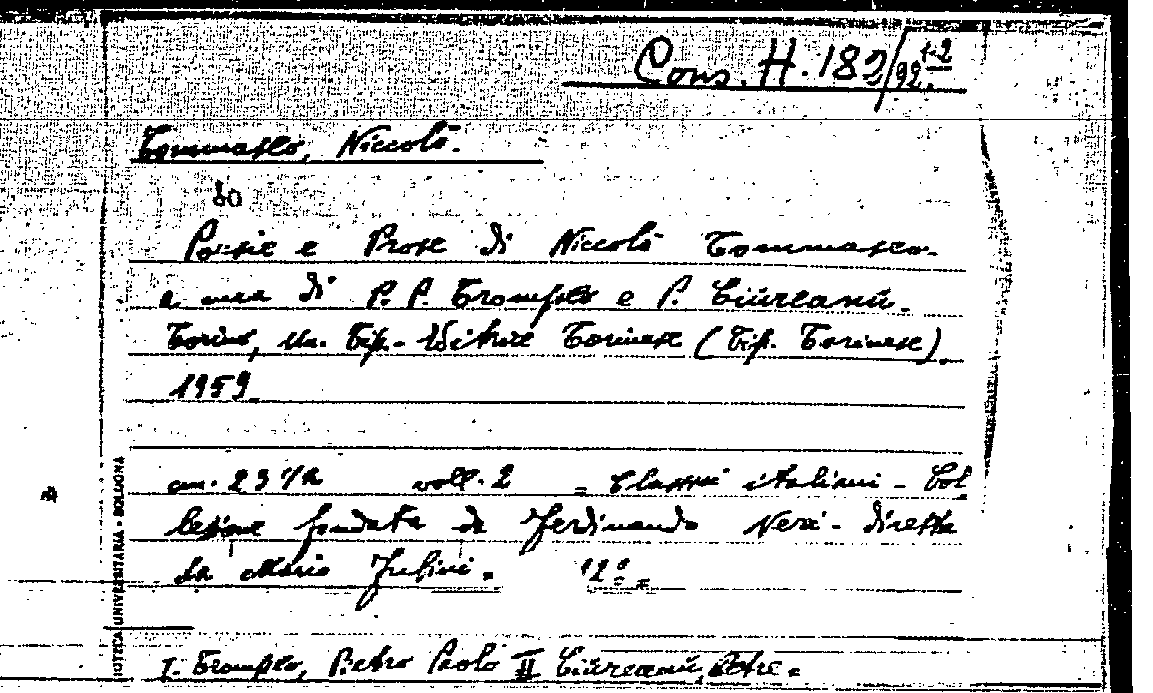 Cons. H. 182/92.1-2
Tommaseo, Niccolò.
Poesie e Prose di Niccolò Tommaseo.
a cura di P. P. Trompeo e P. Ciureanu.
Torino, Un. Tip.-Editrice Torinese (Tip. Torinese)
1959.
cm. 23 1/2 voll. 2 = Classici italiani - Col
lezione fondata da Ferdinando Neri - diretta
da Mario Fubini. 12°. =
I. Trompeo, Pietro Paolo II Ciureanu, Petre.
IOTECA UNIVERSITARIA - BOLOGNA